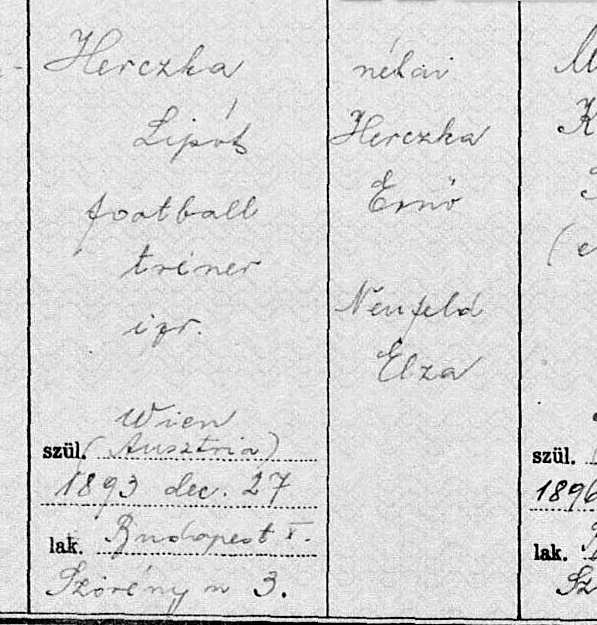 Herczka
Lipót
football
tréner
izr.
Wien
szül. (Ausztria)
1893 dec. 27
lak. Budapest X.
Szörény u 3.
néhai
Herczka
Ernő
Neufeld
Elza
szül.
1896
lak.
Sz